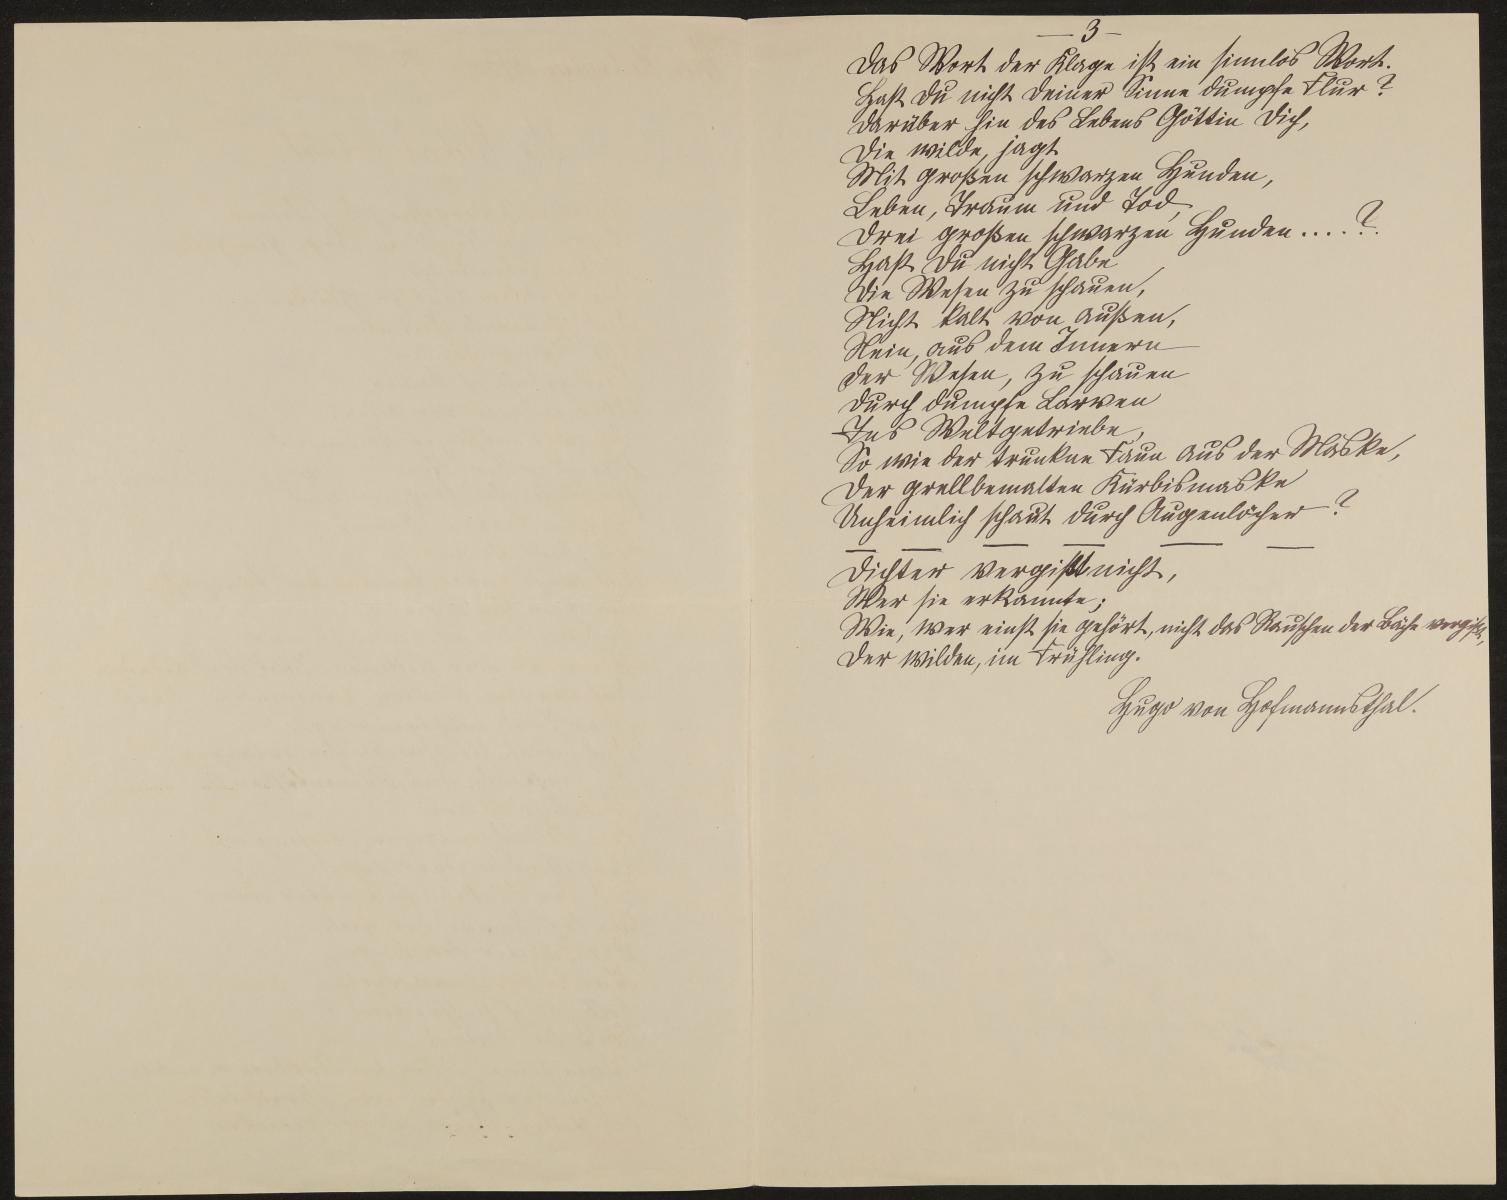 — 3 —
Das Wort der Klage ist ein sinnlos Wort.
Hast Du nicht Deiner Sinne dumpfe Flur?
Darüber hin des Lebens Göttin Dich,
Die wilde, jagt
Mit großen schwarzen Hunden,
Leben, Traum und Tod,
Drei großen schwarzen Hunden....?.
Hast Du nicht Gabe
Die Wesen zu schauen,
Nicht kalt von Außen,
Nein, aus dem Innern
Der Wesen, zu schauen
Durch dumpfe Larven
Ins Weltgetriebe,
So wie der trunkne Faun aus der Maske,
Der grellbemalten Kürbismaske
Unheimlich schaut durch Augenlöcher?
— — — — — —
Dichter vergißt nicht,
Wer sie erkannte;
Wie, wer einst sie gehört, nicht das Rauschen der Bäche vergißt,
Der wilden, im Frühling.
Hugo von Hofmannsthal.